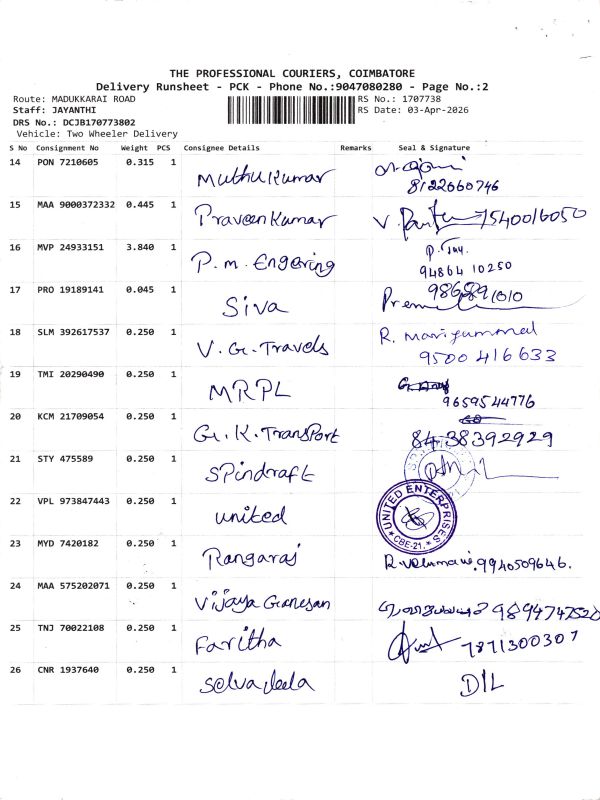 THE PROFESSIONAL COURIERS, COIMBATORE
Delivery Runsheet - PCK - Phone No.:9047080280 - Page No.:2
Route: MADUKKARAI ROAD RS No.: 1707738
Staff: JAYANTHI RS Date: 03-Apr-2026
DRS No.: DCJB170773802
Vehicle: Two Wheeler Delivery
S No Consignment No Weight PCS Consignee Details Remarks Seal & Signature
14 PON 7210605 0.315 1 Muthukumar
8122660746
15 MAA 9000372332 0.445 1 Praveen Kumar 7540016050
16 MVP 24933151 3.840 1 P.M. Engering
94864 10250
17 PRO 19189141 0.045 1 Siva
18 SLM 392617537 0.250 1 V.G. Travels R. Mariyammal
9500 416633
19 TMI 20290490 0.250 1 MRPL
9659544776
20 KCM 21709054 0.250 1 G.K. Transport 8438392929
21 STY 475589 0.250 1 Spindraft
22 VPL 973847443 0.250 1 united
UNITED ENTERPRISES
CBE-21.
23 MYD 7420182 0.250 1 Rangaraj R. Velumani. 9940509646.
24 MAA 575202071 0.250 1 Vijaya Ganesan 9894747520
25 TNJ 70022108 0.250 1 Faritha 7871300307
26 CNR 1937640 0.250 1 DIL